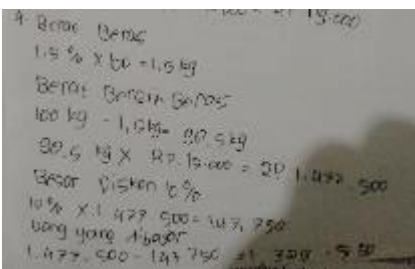 15.000
4. Berat Beras
1.5 % X 100 = 1,5 kg
Berat Bersih Beras
100 kg - 1,5 kg = 98.5 kg
98.5 kg X Rp. 15.000 = Rp 1.477.500
Besar Diskon 10%
10% X 1.477.500 = 147.750
Uang yang dibayar
1.477.500 - 147 750 = 1.329